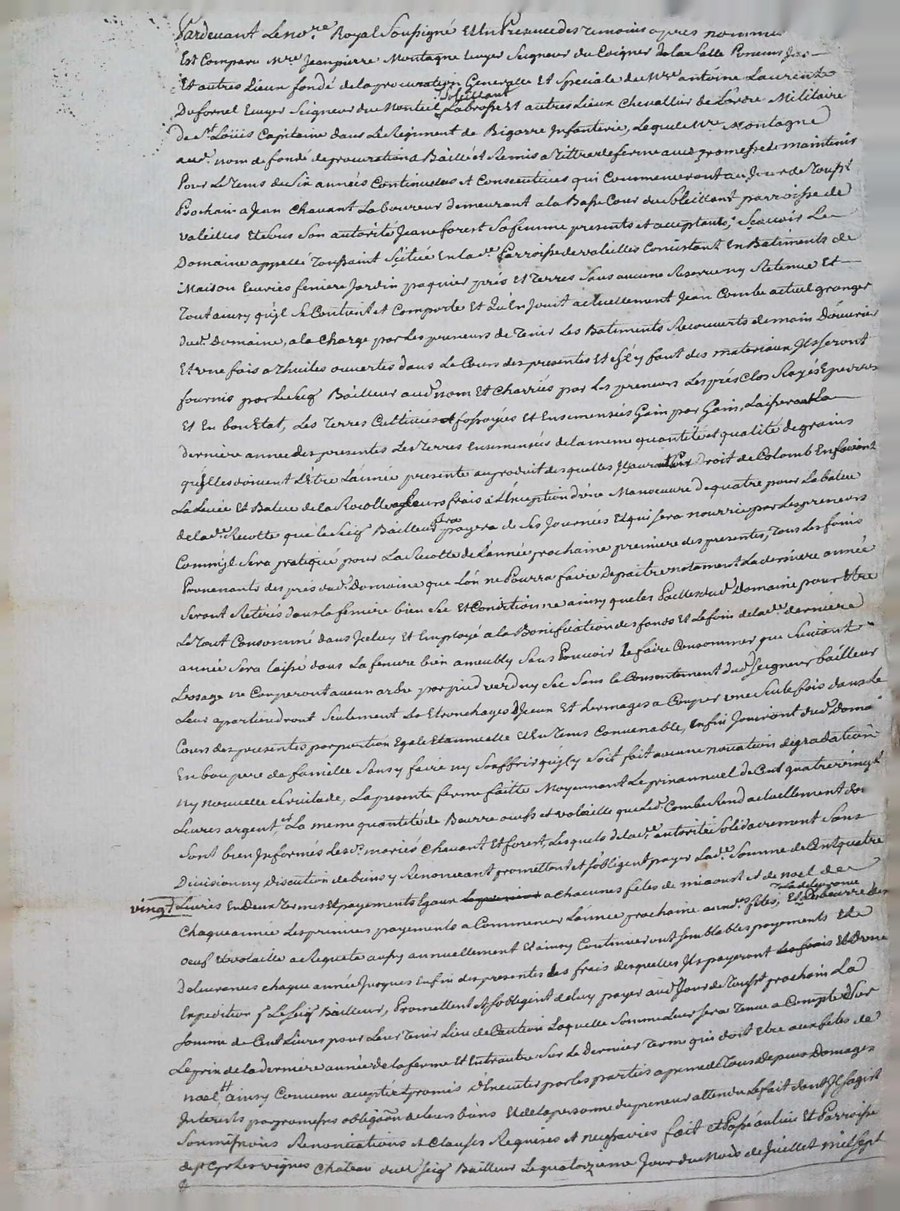 Pardevant Le no.re Royal Soussigné Et En Presence des temoins apres nommés
Est Comparu M.re Jeanpierre Montagne Ecuyer Seigneur du Coigner de la Salle
Et autres Lieux fondé de la procuration Generalle Et Speciale de M.re antoine Laurent
Dufornel Ecuyer Seigneur du Monteil, Soleillant Labrosse Et autres Lieux Chevallier de Lordre Militaire
de S.t Louis Capitaine dans Le Regiment de Bigorre Infanterie, Lequel M.re Montagne
aud.t nom de fondé de procuration a Baillé et Remis a tittre de ferme avec promesse de maintenir
Pour Le tems de Six années Continuelles et Consecutives qui Commenceront au Jour de Touss.t
Prochain a Jean Chavant Laboureur demeurant a la Basse Cour de Soleillant parroisse de
valeilles Et Sous Son autorité Jeane forest Sa femme presents et acceptants, Scavoir Le
Domaine appellé Toussaint Situé En lad.e Parroisse de valeilles Consistant En Batiments de
Maison Ecuries feniere Jardin paquier prés et Terres Sans aucune Reserve ny Retenue Et
Tout ainsy qu'il Se Contient et Comporte Et qu'En Jouit actuellement Jean Combe actuel granger
dud.t Domaine, a la Charge par Les preneurs de Tenir Les Batiments Recouverts de main D'ouvrier
Et une fois a Thuiles ouvertes dans Le Cours des presentes Et S'il y faut des materiaux Ils Seront
fournis par Le Seig.r Bailleur aud.t nom Et Charriés par Les preneurs Les prés Clos Rasés Epierrés
Et En bon Etat, Les Terres Cultivées et fossoyées Et Ensemensés Gain par Gain, Laisseront La
derniere année des presentes Les Terres Ensemensées de la meme quantité et qualité de grains
qu'elles doivent L'être L'année presente au produit des quelles Ils auront Leur Droit de Colomb En faisant
La Levée Et Bateue de la Recolte a leurs frais a L'exception d'une Manoeuvre de quatre pour La bateue
de lad.e Recolte que le Seig.r Bailleur payera de Ses Journées Et qui Sera nourrie par Les preneurs
Comm'il Sera pratiqué pour La Recolte de L'année prochaine premiere des presentes, Tous Les foins
Provenants des prés dud.t Domaine que L'on ne Pourra faire depaitre notament La derniere année
Seront Retirés dans la feniere bien Sec Et Conditionné ainsy que les Pailles dud.t Domaine pour Etre
Le Tout Consommé dans Icelluy Et Employé a la Bonification des fonds Et Le foin de lad.e derniere
année Sera laissé dans La feniere bien ameubly Sans Pouvoir Le faire Consommer que Suivant
L'usage ne Couperont aucun arbre par pied verd ny Sec Sans le Consentement dud.t Seigneur bailleur
Leur apartiendront Seulement Les Etronchages D'Iceux Et Les rmages a Couper une Seule fois dans Le
Cours des presentes par portion Egale Et annuelle Et En Tems Convenable, Enfin Jouiront dud.t Domaine
En bon pere de famille Sans y faire ny Souffrir qu'il y Soit fait aucune novation degradation
ny nouvelle Servitude, La presente ferme faitte Moyennant Le prix annuel de Cent quatre vingt
Livres argent, Et La meme quantité de Beurre oeufs et volaille que Led.t Combe Rend actuellement dont
Sont bien Informés Lesd.ts mariés Chavant Et forest, Lesquels de lad.e autorité Solidairement Sans
Division ny discution de biens y Renonceant promettent et S'obligent payer Lad.e Somme de Cent quatre
vingt Livres En Deux Termes Et payements Egaux a Chacunes fetes de mi aoust et de noel de
Chaque année Les premiers payements a Commencer L'année prochaine auxd.tes fetes, Et Le Beurre des
oeufs Et volaille a Requete aussy annuellement Et ainsy Continueront Semblables payements Et
Delivrances chaque année Jusques Enfin des presentes des frais desquelles Ils payeront Les frais Et d'une
Expedition p.r Le Seig.r Bailleur, Promettent Et S'obligent de luy payer aud.t Jour de Touss.t prochain La
Somme de Cent Livres pour Leur Tenir Lieu de Caution Laquelle Somme Leur Sera Tenue a Compte Sur
Le prix de la derniere année de la ferme Et Entr'autre Sur Le dernier Terme qui doit Etre aux fetes de
noel, ainsy Convenu accepté et promis d'Executer par les parties a peine de Tous Depens Domages
Interets par promesses obligaon de leurs biens Et de la personne du preneur attendu Le fait dont Il S'agit
Soumissions Renonciations et Clauses Requises et necessaires fait et Passé au lieu Et Parroisse
de S.t Cyr Les vignes Chateau dud.t Seig.r Bailleur Le quatorzieme Jour du Mois de Juillet mil Sept